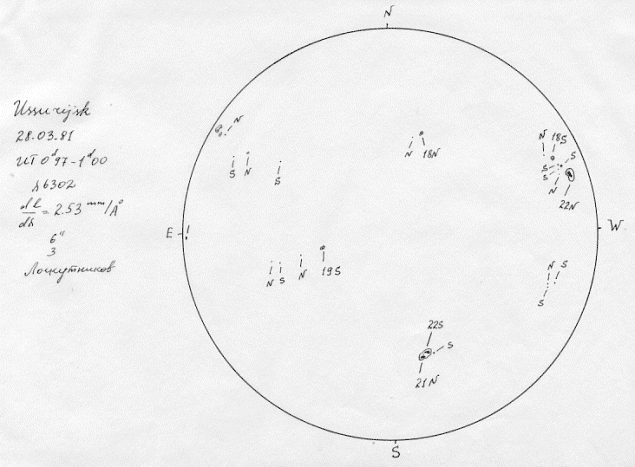 Ussurijsk
28.03.81
UT 0ᵈ97-1ᵈ00
λ6302
dl/dλ = 2.53 mm/A°
6"
3
Лоскутников
N
N
N 18N
N 18S
S
S
S
N
22N
S N
S
E
W
N S N
19S
N S
S
22S
S
21N
S